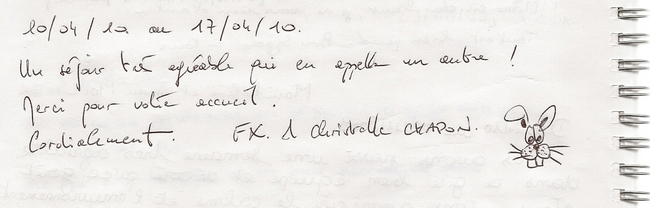 10/04/10 au 17/04/10.
Un séjour très agréable qui en appelle un autre !
Merci pour votre accueil.
Cordialement. FX. & Christelle CHAPON.